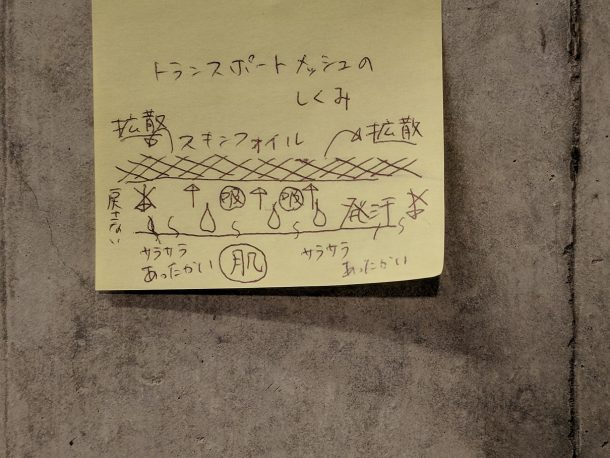 トランスポートメッシュの
しくみ
拡散 スキンフォイル 拡散
戻さない 吸 吸 発汗
サラサラ サラサラ
あったかい 肌 あったかい